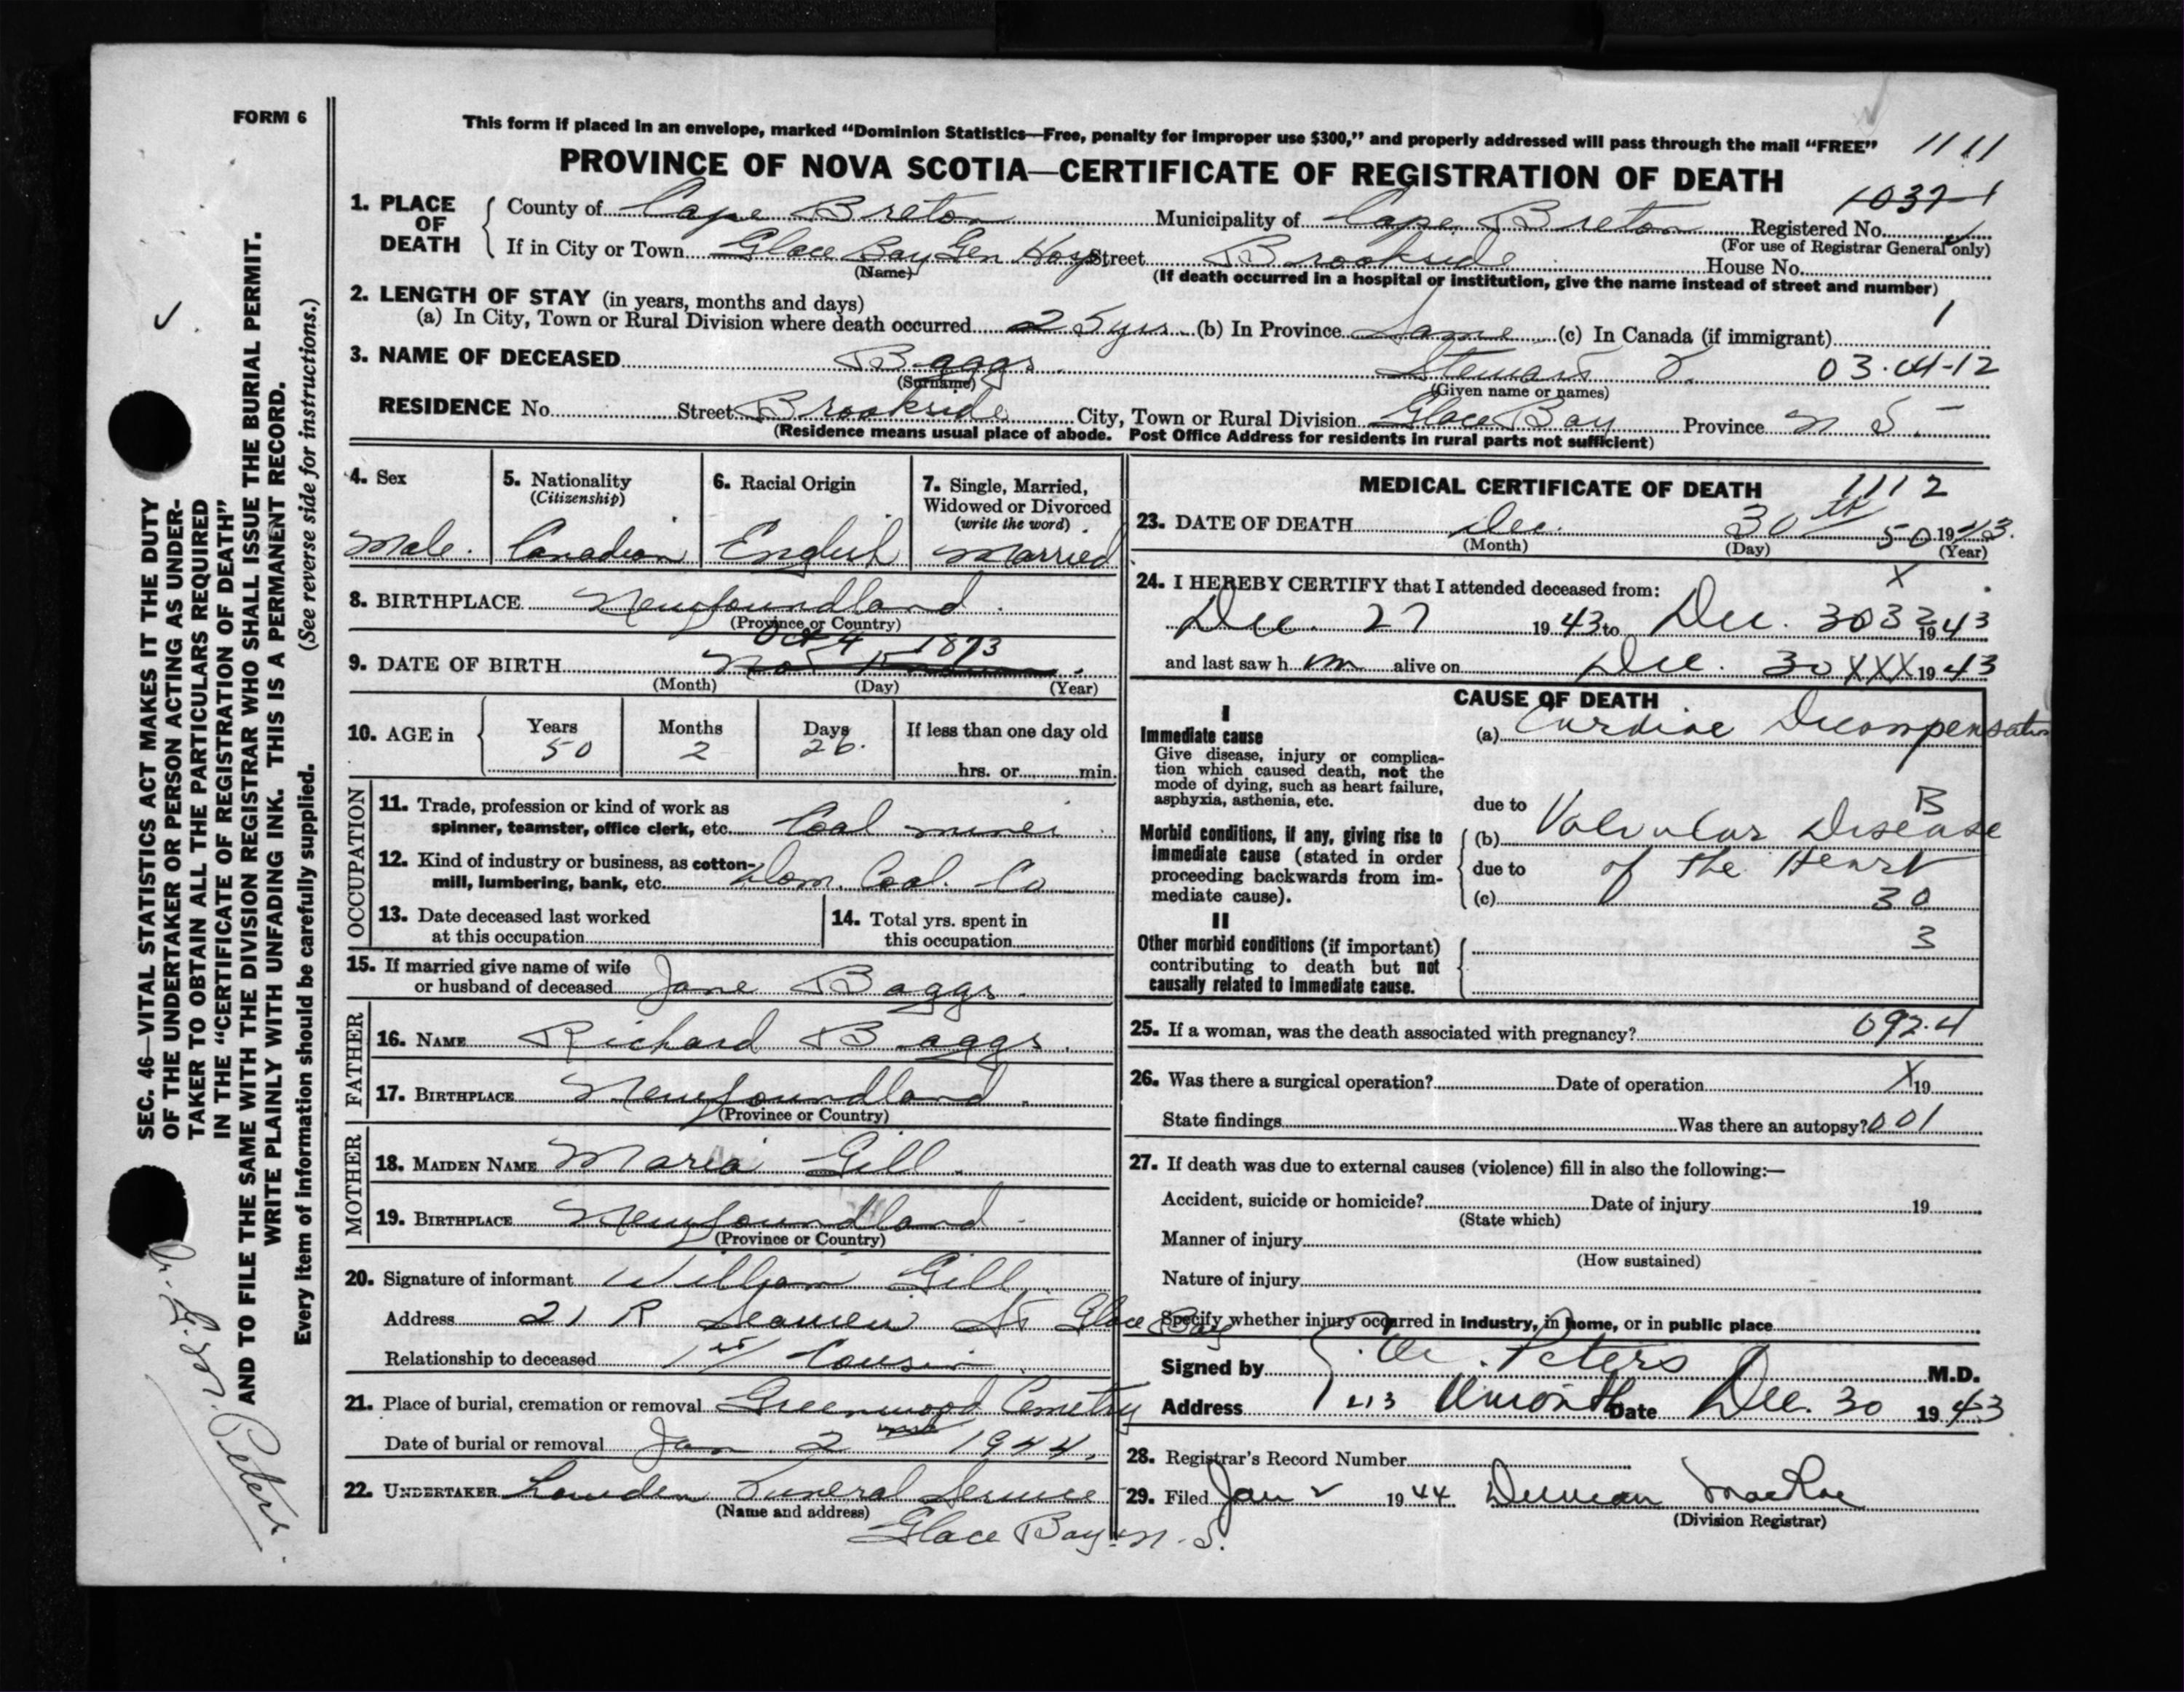 FORM 6
This form if placed in an envelope, marked “Dominion Statistics—Free, penalty for improper use $300,” and properly addressed will pass through the mail “FREE” 1111
PROVINCE OF NOVA SCOTIA—CERTIFICATE OF REGISTRATION OF DEATH
1037-1
1. PLACE OF DEATH
County of Cape Breton Municipality of Cape Breton Registered No.
(For use of Registrar General only)
If in City or Town Glace Bay Gen Hosp Street Brookside House No.
(Name) (If death occurred in a hospital or institution, give the name instead of street and number)
2. LENGTH OF STAY (in years, months and days)
(a) In City, Town or Rural Division where death occurred 25 yrs (b) In Province Same (c) In Canada (if immigrant) 1
3. NAME OF DECEASED Baggs Stewart 03-04-12
(Surname) (Given name or names)
RESIDENCE No. Street Brookside City, Town or Rural Division Glace Bay Province N S.
(Residence means usual place of abode. Post Office Address for residents in rural parts not sufficient)
4. Sex
Male.
5. Nationality
(Citizenship)
Canadian
6. Racial Origin
English
7. Single, Married,
Widowed or Divorced
(write the word)
Married
8. BIRTHPLACE Newfoundland.
(Province or Country)
Oct 4 1893
9. DATE OF BIRTH Not Known.
(Month) (Day) (Year)
10. AGE in
Years Months Days If less than one day old
50 2 26.
hrs. or min.
OCCUPATION
11. Trade, profession or kind of work as
spinner, teamster, office clerk, etc. Coal miner
12. Kind of industry or business, as cotton-
mill, lumbering, bank, etc. Dom. Coal. Co
13. Date deceased last worked
at this occupation
14. Total yrs. spent in
this occupation
15. If married give name of wife
or husband of deceased Jane Baggs.
FATHER
16. NAME Richard Baggs.
17. BIRTHPLACE Newfoundland.
(Province or Country)
MOTHER
18. MAIDEN NAME Maria Gill.
19. BIRTHPLACE Newfoundland.
(Province or Country)
20. Signature of informant William Gill
Address 21 R Seaview St Glace Bay
Relationship to deceased 1st Cousin
21. Place of burial, cremation or removal Greenwood Cemetry
Date of burial or removal Jan. 2 1944.
22. UNDERTAKER Lowden Funeral Service
(Name and address)
Glace Bay N. S.
MEDICAL CERTIFICATE OF DEATH 1112
23. DATE OF DEATH Dec. 30th 50 1943.
(Month) (Day) (Year)
24. I HEREBY CERTIFY that I attended deceased from: X
Dec. 27 1943 to Dec. 30 32 1943
and last saw h im alive on Dec. 30 XXX 1943
CAUSE OF DEATH
I
Immediate cause
Give disease, injury or complica-
tion which caused death, not the
mode of dying, such as heart failure,
asphyxia, asthenia, etc.
(a) Cardiac Decompensation
due to B
Morbid conditions, if any, giving rise to
immediate cause (stated in order
proceeding backwards from im-
mediate cause).
(b) Valvular Disease
due to of the Heart
(c) 30
II
Other morbid conditions (if important)
contributing to death but not
causally related to immediate cause.
3
25. If a woman, was the death associated with pregnancy? 092.4
26. Was there a surgical operation? Date of operation X 19
State findings Was there an autopsy? 001
27. If death was due to external causes (violence) fill in also the following:—
Accident, suicide or homicide? Date of injury 19
(State which)
Manner of injury
(How sustained)
Nature of injury
Specify whether injury occurred in industry, in home, or in public place
Signed by Peters M.D.
Address Date Dec. 30 1943
28. Registrar's Record Number
29. Filed Jan 2 1944 Duncan MacRae
(Division Registrar)
SEC. 46—VITAL STATISTICS ACT MAKES IT THE DUTY
OF THE UNDERTAKER OR PERSON ACTING AS UNDER-
TAKER TO OBTAIN ALL THE PARTICULARS REQUIRED
IN THE “CERTIFICATE OF REGISTRATION OF DEATH”
AND TO FILE THE SAME WITH THE DIVISION REGISTRAR WHO SHALL ISSUE THE BURIAL PERMIT.
WRITE PLAINLY WITH UNFADING INK. THIS IS A PERMANENT RECORD.
Every item of information should be carefully supplied. (See reverse side for instructions.)
Dr. Peters.